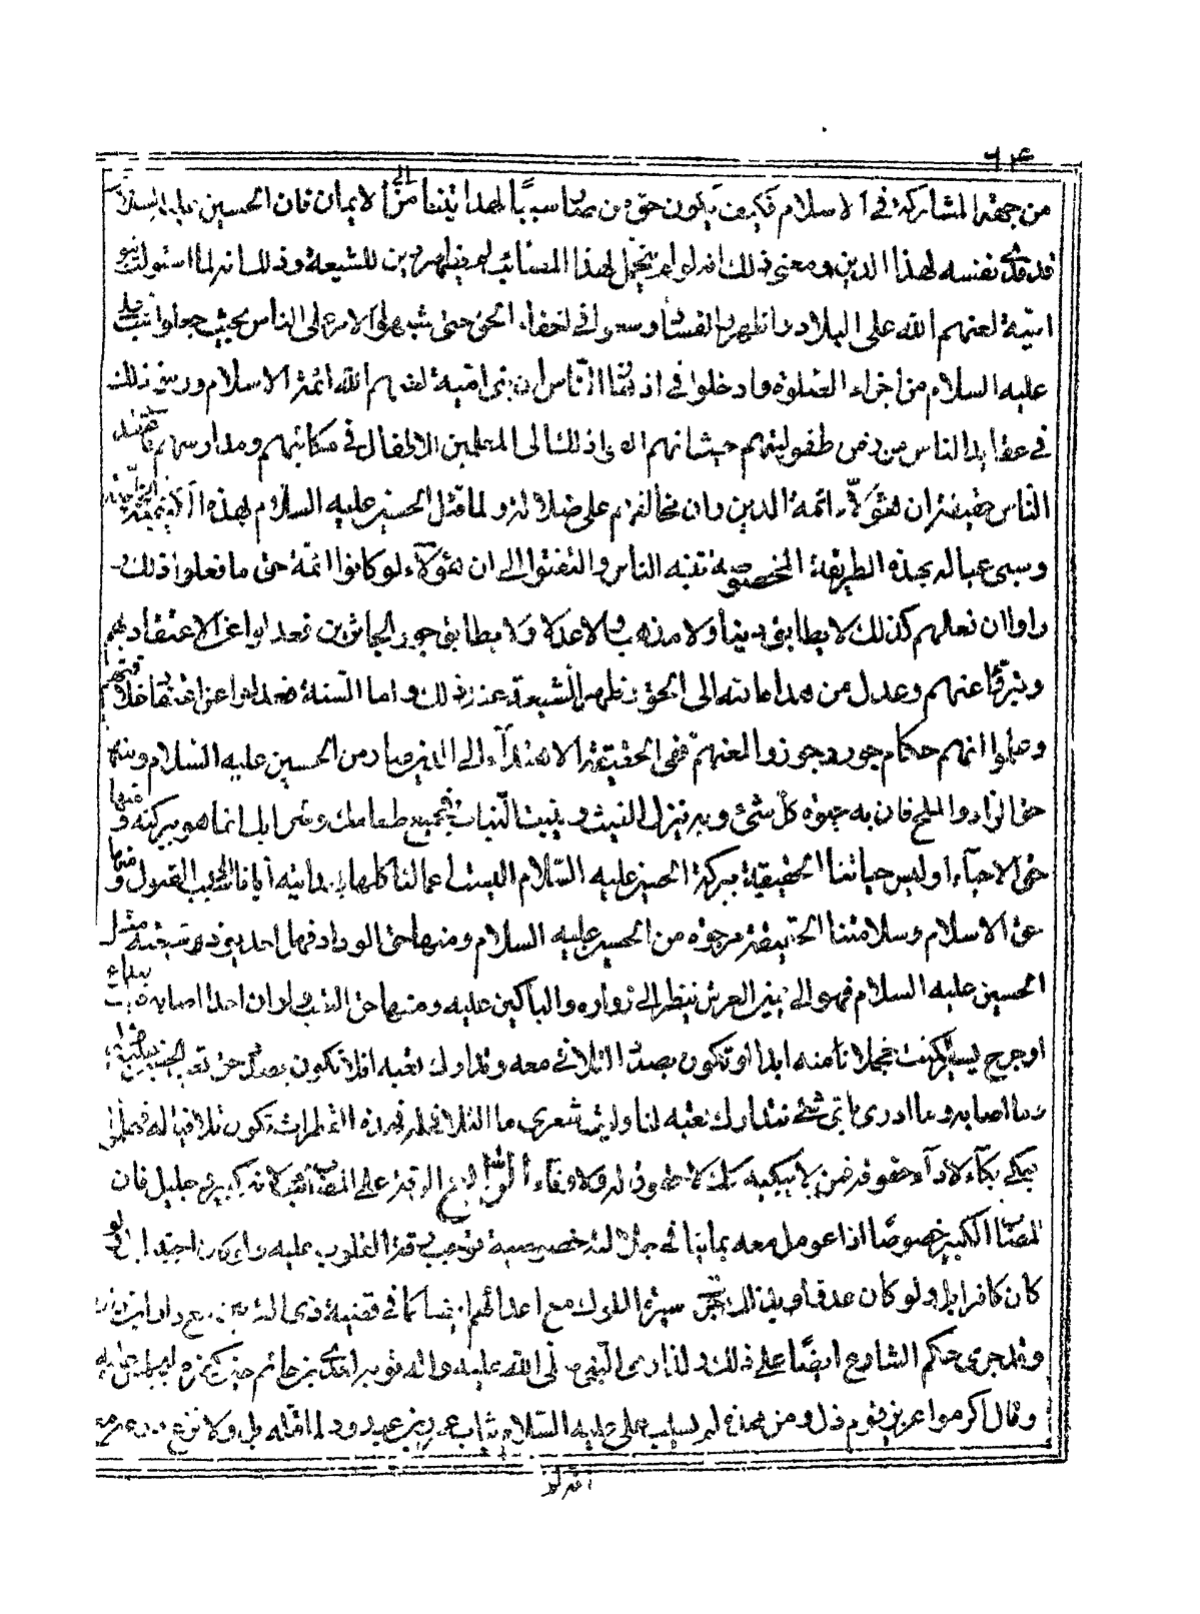 ٦٤
من جهة المشاركة في الاسلام فكيف يكون حق من صار سببًا لهدايتنا الى الايمان فان الحسين عليه السلام
قد فدى نفسه لهذا الدين ومعنى ذلك انه لو لم يتحمل لهذا المصائب لم يظهر دين للشيعة وذلك انه لما استولت بنو
امية لعنهم الله على البلاد واظهروا الفساد وسعوا في اخفاء الحق حتى شبهوا الامر على الناس بحيث جعلوا سب علي
عليه السلام من اجزاء الصلوة وادخلوا في اذهان الناس ان بني امية لعنهم الله ائمة الاسلام ورسخ ذلك
في عقايد الناس من زمن طفوليتهم حيث انهم ذلك الى المعلمين الاطفال في مكاتبهم ومدارسهم فاعتقد
الناس حقيقة ان هؤلاء ائمة الدين وان مخالفتهم على ضلالة ولما قتل الحسين عليه السلام بهذه الكيفية الخاصة
وسبى عياله بهذه الطريقة المخصوصة تنبه الناس والتفتوا الى ان هؤلاء لو كانوا ائمة حق ما فعلوا ذلك
راوا ان فعلهم كذلك لا يطابق دينا ولا مذهبا ولا عدلا ولا يطابق جور الجائرين فعدلوا عن الاعتقاد بهم
وتبرؤا عنهم وعدل من هداه الله الى الحق فظهر الشيعة عند ذلك واما السنة فعدلوا عن اعتقاد خلافتهم
وعلموا انهم حكام جور وجوزوا لعنهم ففي الحقيقة الاهتداء الى الدين صار من الحسين عليه السلام ومنها
حق الزاد والملح فان به حيوة كل شئ وبه ينزل الغيث وينبت النبات فجميع طعامك وشرابك انما هو ببركته ومنها
حق الاحياء اوليس حياتنا الحقيقية ببركة الحسين عليه السلام اليست اعمالنا كلها القبول ومنها
حق الاسلام وسلامتنا الحقيقة مرجوة من الحسين عليه السلام ومنها حق الوداد فهل احد يود شيعته مثل
الحسين عليه السلام فهو الى يمين العرش ينظر الى زواره والباكين عليه ومنها حق التعب لو ان احدا اصابه تعب
او جرح لكنت خجلانا منه ابدا او تكون بصدد التلافي معه وتدارك تعبه افلا تكون بصدد حق تعب الحسين
وما اصابه وما ادري باي شئ نتدارك تعبه لنا وليت شعري ما التلافي
يبكي بكاء لاداء حقوقه فمن لا يبكيه كذلك لا حقوق له ولا وفاء الرابع الرقة على المصائب لانه كبير جليل فان
المصاب الكبير خصوصًا اذا عومل معه بما ينافي جلالته خصيصة توجب رقة القلوب عليه وان كان اجنبيا بل لو
كان كافرا بل ولو كان عدوا وبذلك جرى سيرة الملوك مع اعدائهم ايضا كما في قضية ذي القرنين مع دارا
وقد جرى حكم الشارع ايضًا على ذلك ولذا رمى النبي صلى الله عليه وآله ثوبه لعدي بن حاتم
وقال اكرموا عزيز قوم ذل ومن هذه لم يسلب علي عليه السلام ثياب عمرو بن عبد ود لما قتله بل ولا نزع